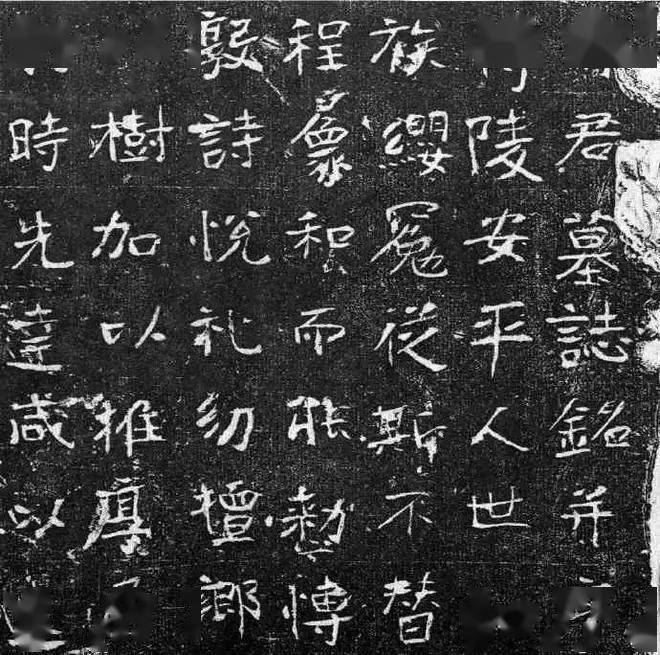 君墓誌銘并
陵安平人世
族纓冕從斯不替
程彙和而能勤愽
敦詩悅礼幼擅鄉
樹加以推厚
時先達咸以